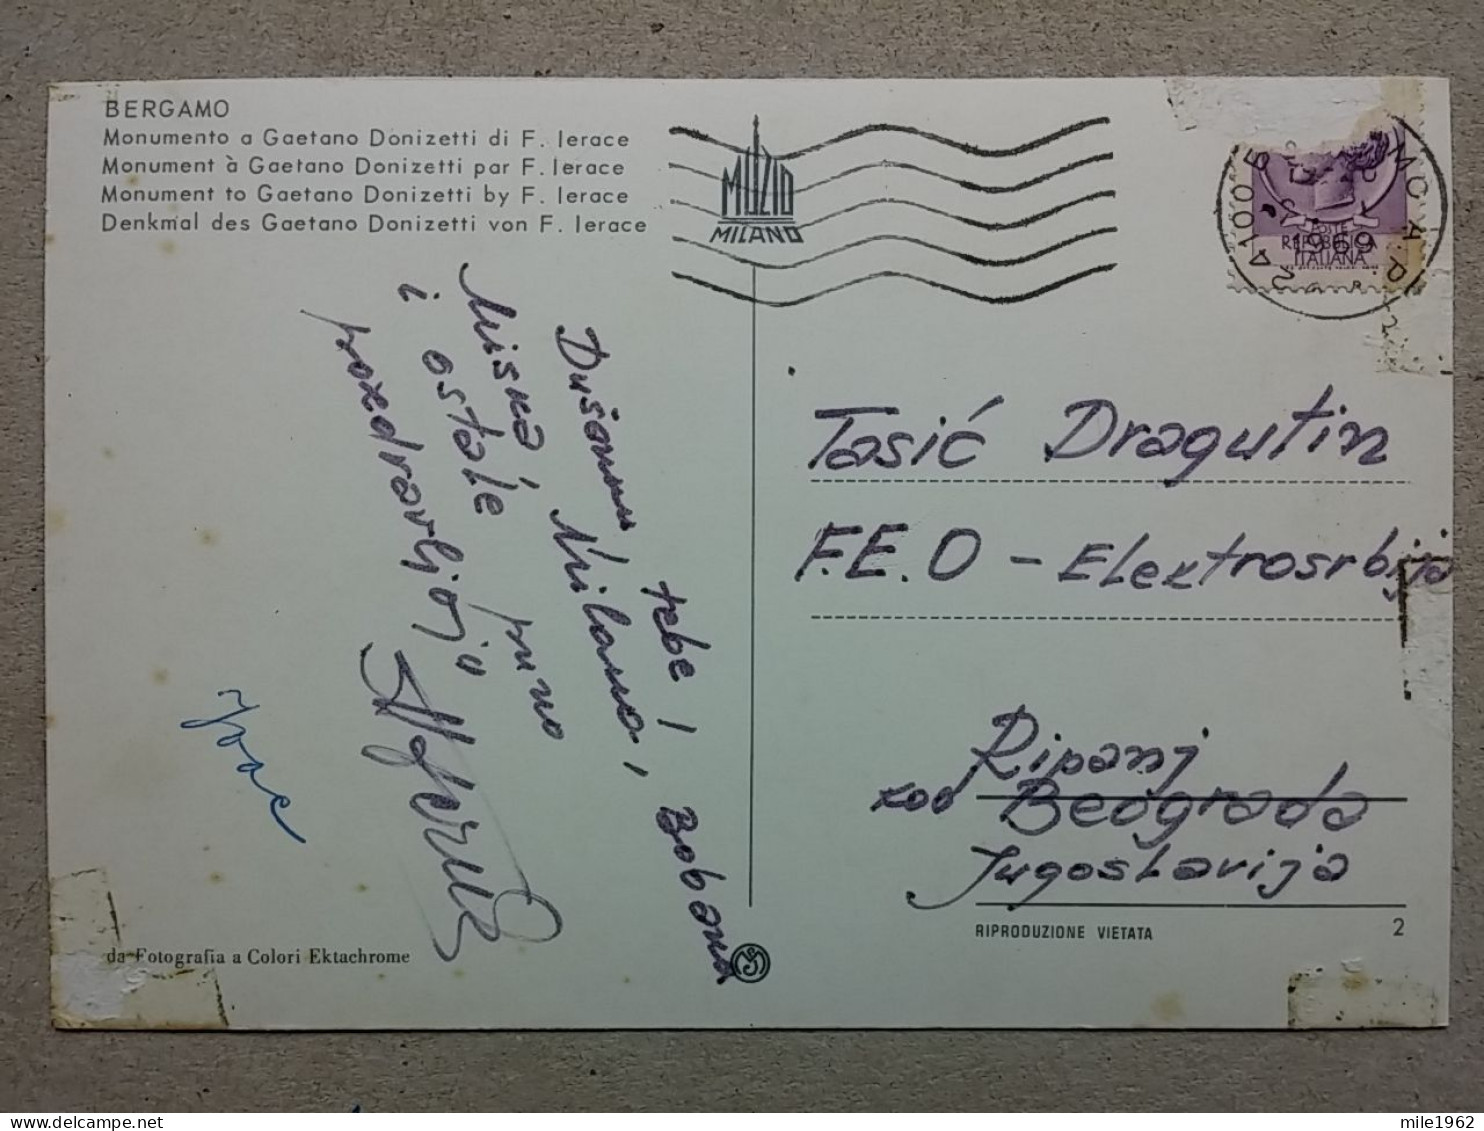 BERGAMO
Monumento a Gaetano Donizetti di F. Ierace
Monument à Gaetano Donizetti par F. Ierace
Monument to Gaetano Donizetti by F. Ierace
Denkmal des Gaetano Donizetti von F. Ierace
MUZIO
MILANO
24100 BERGAMO A.P.
1969
POSTE
REPUBBLICA
ITALIANA
Dušanu, tebi,
Miška, Milana, Bobana
i ostale puno
pozdravljaju
Tasić Dragutin
F.E.O - Elektrosrbija
Ripanj
kod Beograda
Jugoslavija
RIPRODUZIONE VIETATA
2
da Fotografia a Colori Ektachrome
mile1962